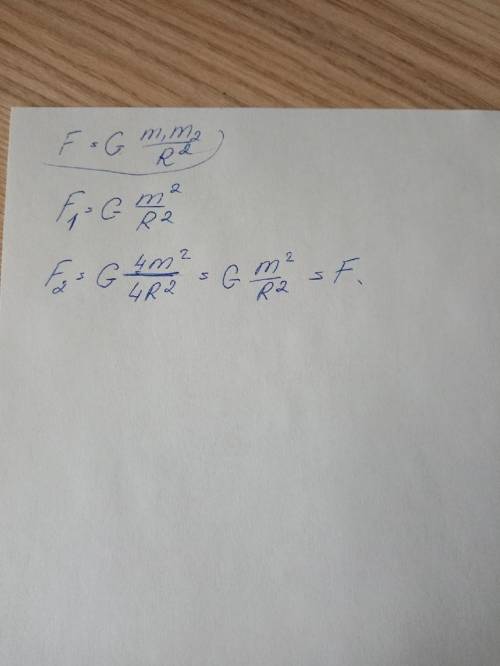 F = G m₁m₂/R²
F₁ = G m²/R²
F₂ = G 4m²/4R² = G m²/R² = F.